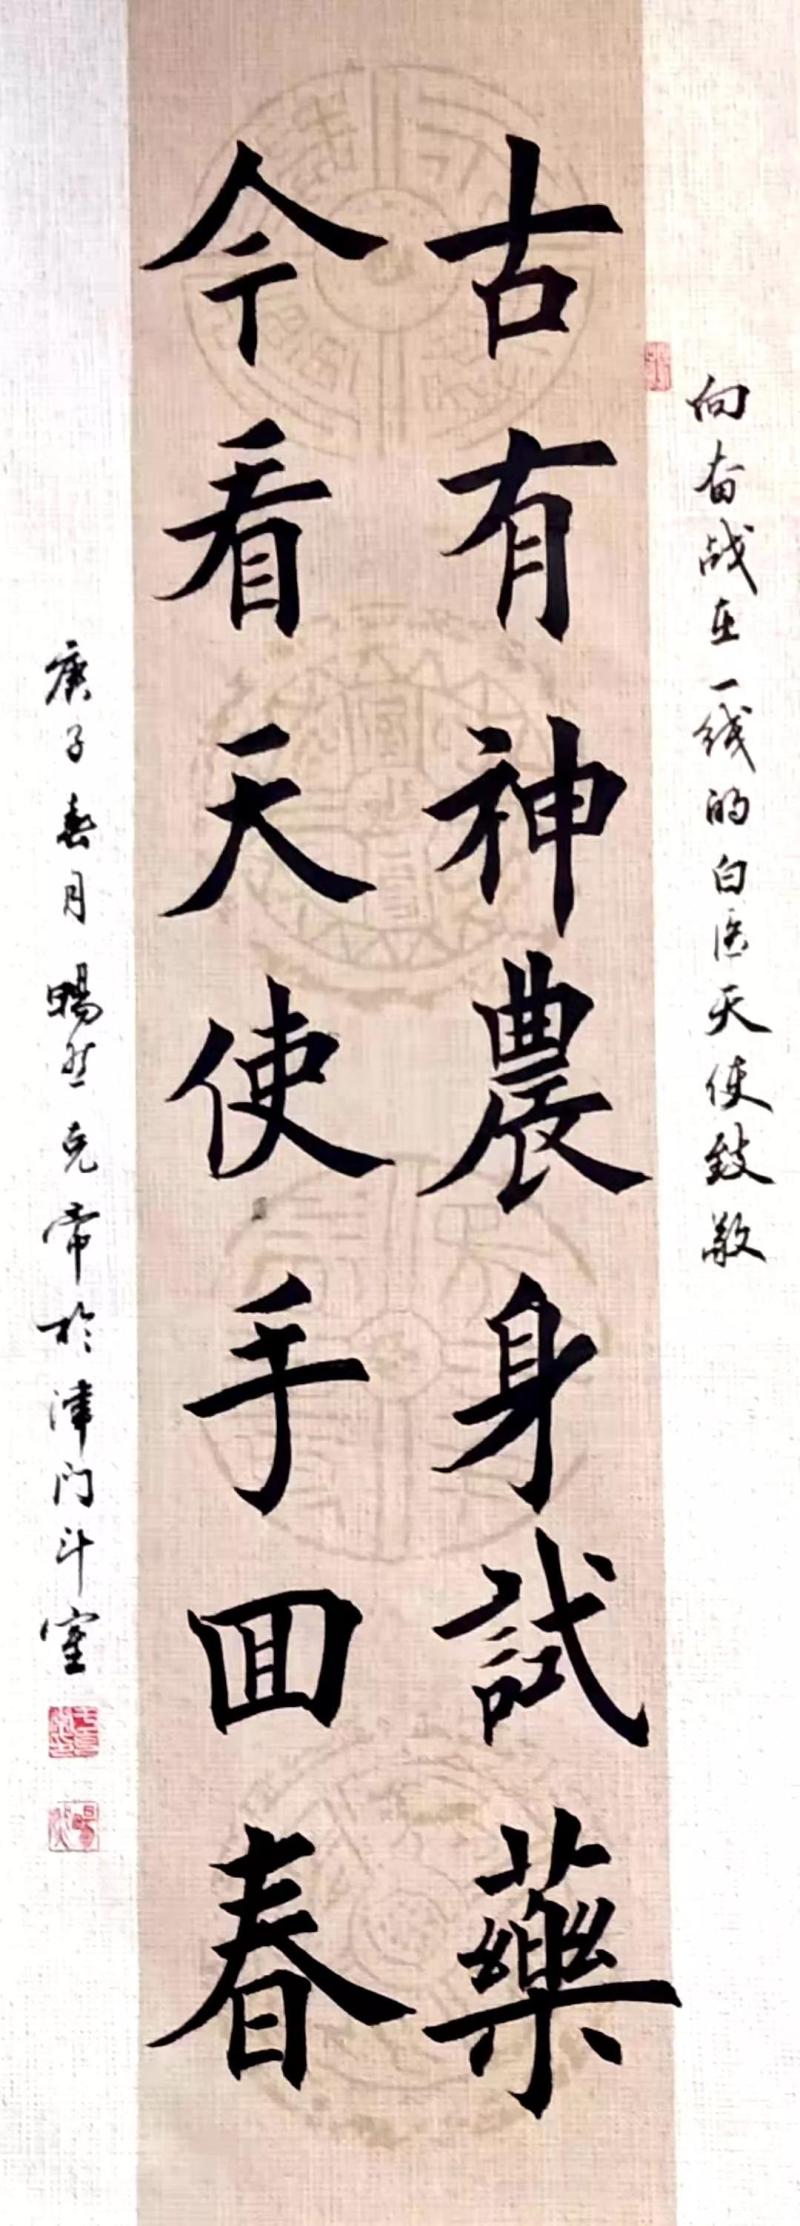 向奋战在一线的白医天使致敬
古有神農身試藥
今看天使手回春
庚子春月暢然克帝於津门斗室